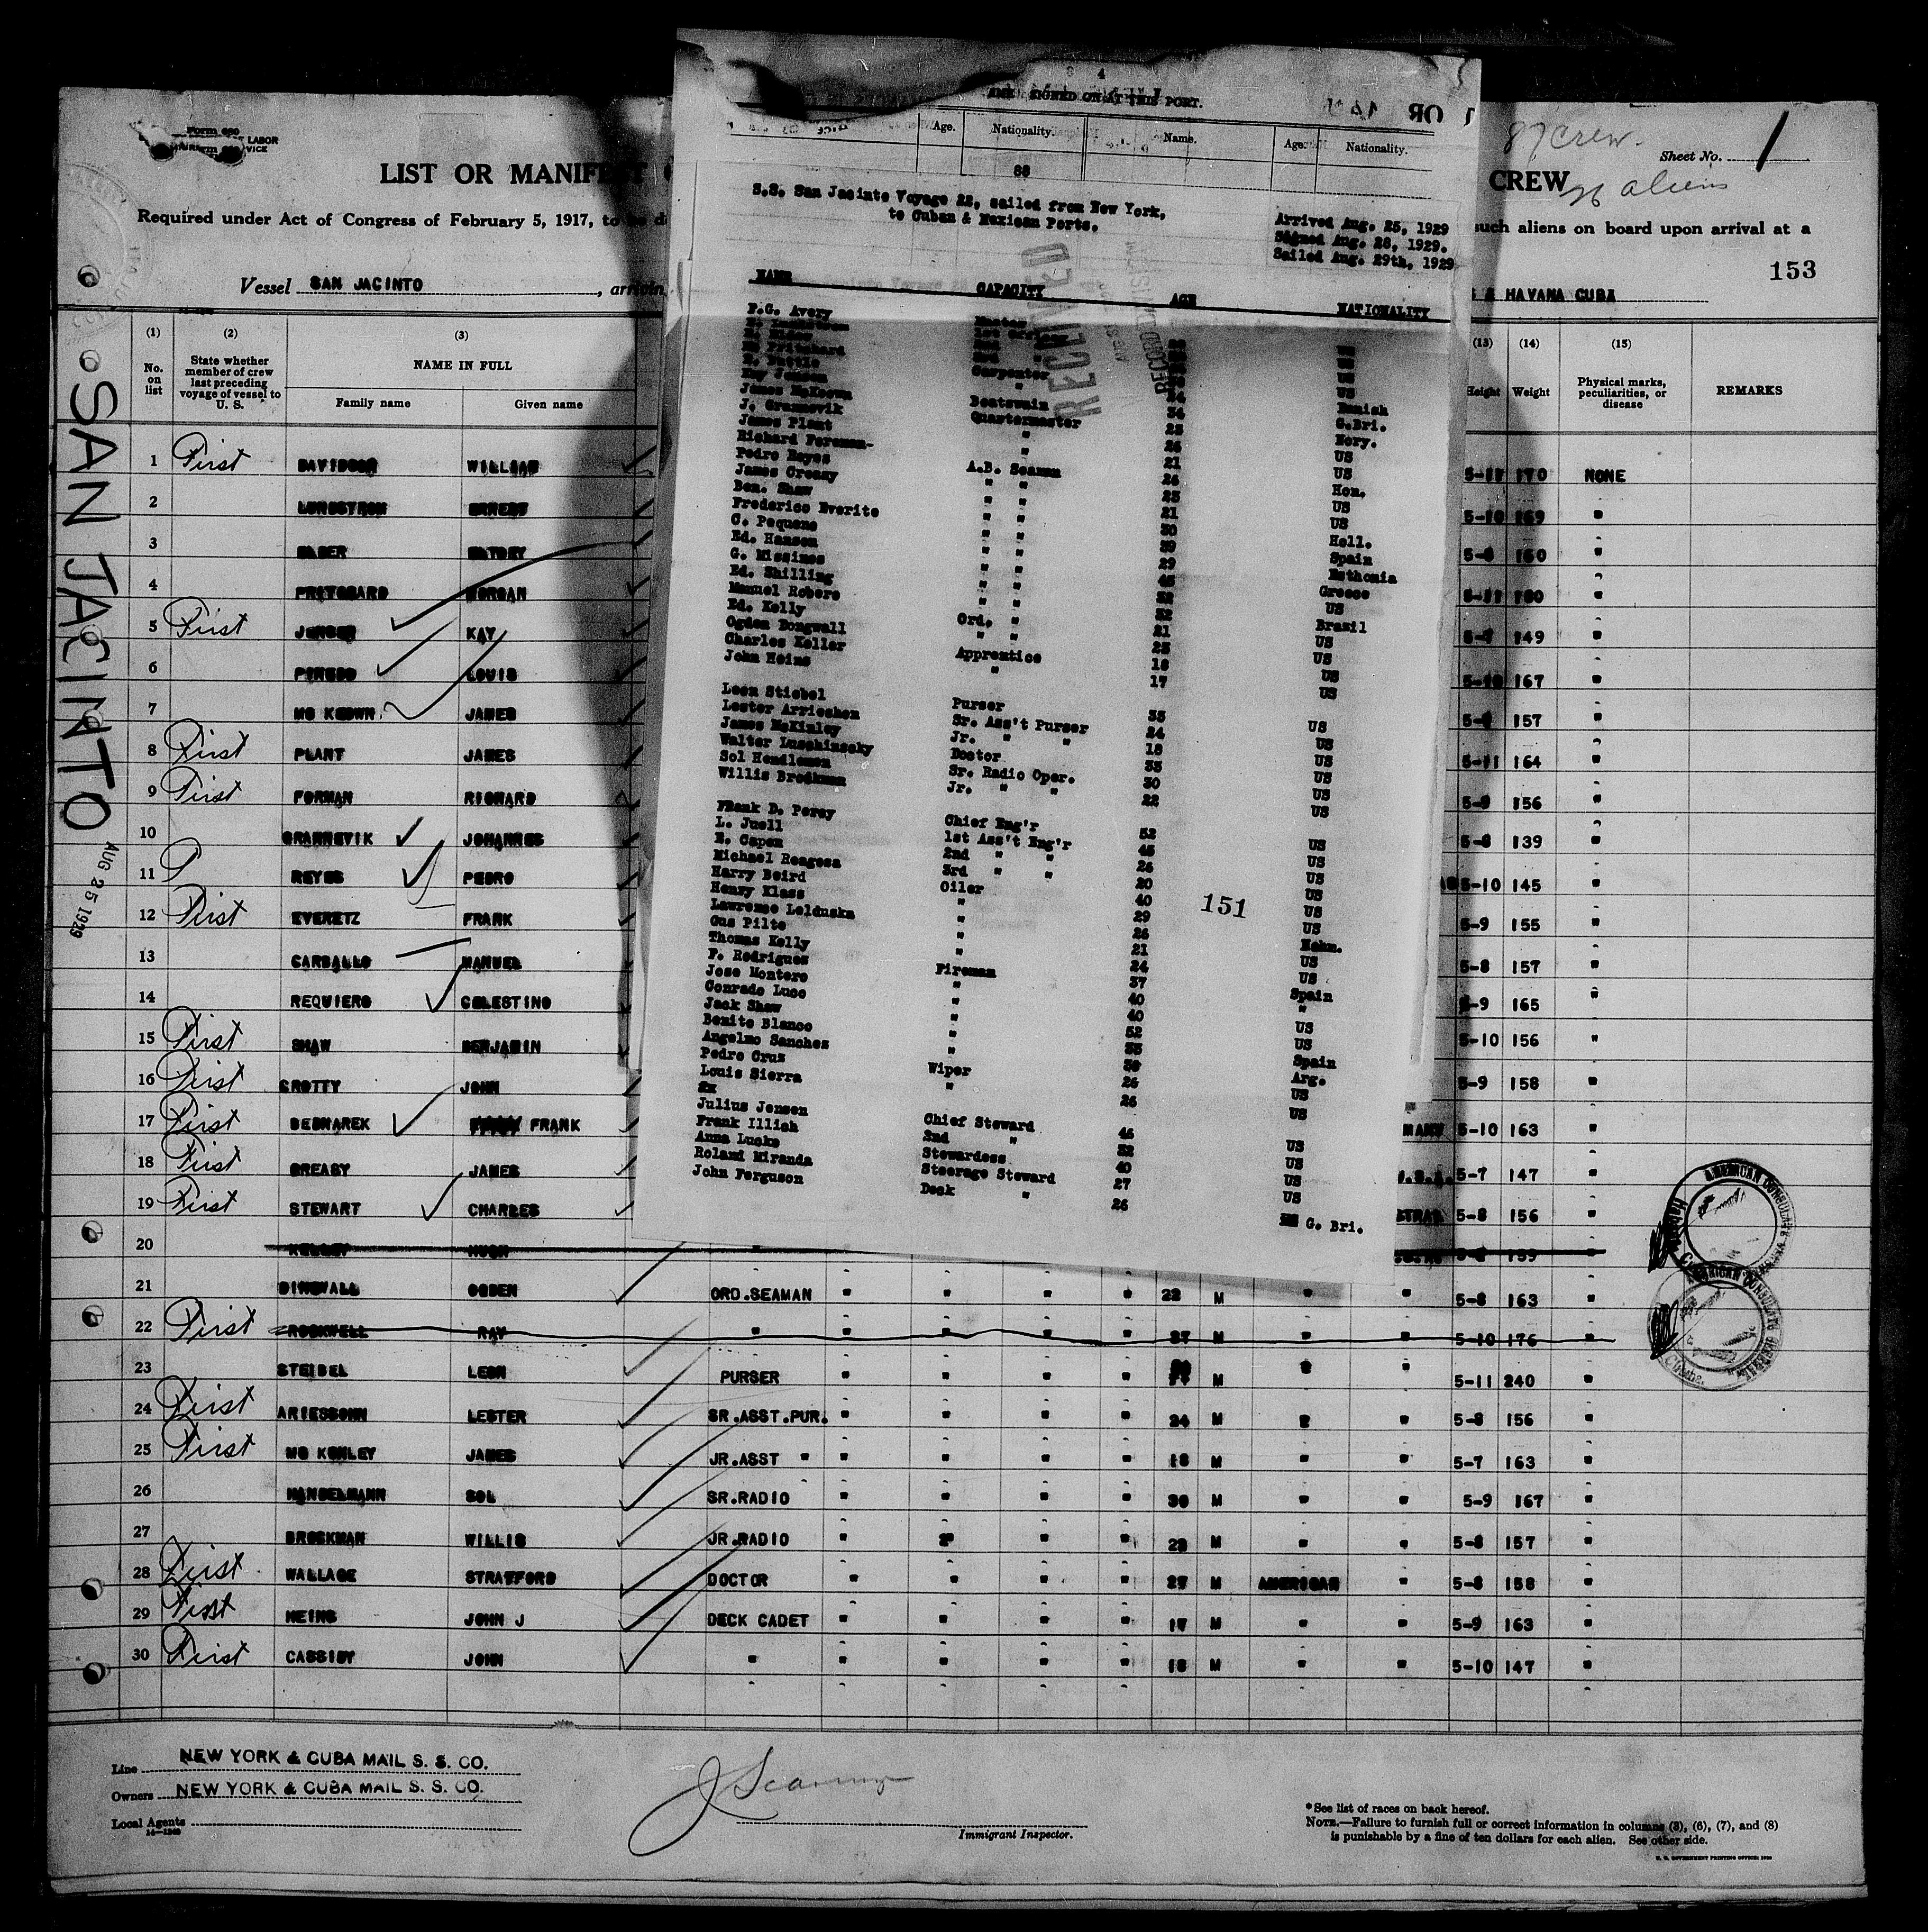 Form 680
LABOR
VICE
LIST OR MANIFEST
CREW
87 crew.
Sheet No. 1
26 aliens
Required under Act of Congress of February 5, 1917, to be d
such aliens on board upon arrival at a
153
Vessel SAN JACINTO, arriving
& HAVANA CUBA
SAN JACINTO
AUG 25 1929
(1) (2) (3) (13) (14) (15)
No. on list
State whether member of crew last preceding voyage of vessel to U. S.
NAME IN FULL
Family name Given name
Height Weight Physical marks, peculiarities, or disease REMARKS
1 First DAVIDSON WILLIAM 5-11 170 NONE
2 LUNDSTROM ERNEST 5-10 169 "
3 5-8 160 "
4 PRITCHARD MORGAN 5-11 180 "
5 First JENSEN KAY 5-7 149 "
6 LOUIS 5-10 167 "
7 MC KEOWN JAMES 157 "
8 First PLANT JAMES 5-11 164 "
9 First FORMAN RICHARD 5-9 156 "
10 GRANNEVIK JOHANNES 5-8 139 "
11 REYES PEDRO 5-10 145 "
12 First EVERETZ FRANK 5-9 155 "
13 CARBALLO MANUEL 5-8 157 "
14 REQUIERO CELESTINO 5-9 165 "
15 First SHAW BENJAMIN 5-10 156 "
16 First CROTTY JOHN 5-9 158 "
17 First BEDNAREK FRANK 5-10 163 "
18 First CREASY JAMES 5-7 147 "
19 First STEWART CHARLES 5-8 156 "
20 KELLEY HUGH 159 "
21 DINGWALL OGDEN ORD.SEAMAN " " " " 22 M " " 5-8 163 "
22 First ROCKWELL RAY " " " " " M " " 5-10 176 "
23 STEIBEL LEON PURSER " " " " M " " 5-11 240 "
24 First ARIESSOHN LESTER SR.ASST.PUR. " " " " 24 M " " 5-8 156 "
25 First MC KONLEY JAMES JR.ASST " " " " " 18 M " " 5-7 163 "
26 HANDELMANN SOL SR.RADIO " " " " 30 M " " 5-9 167 "
27 BROCKMAN WILLIS JR.RADIO " " " " 22 M " " 5-8 157 "
28 First WALLACE STRATFORD DOCTOR " " " " 27 M AMERICAN " 5-8 158 "
29 First HEINS JOHN J DECK CADET " " " " 17 M " " 5-9 163 "
30 First CASSIDY JOHN " " " " " 18 M " " 5-10 147 "
SIGNED ON AT THIS PORT.
Age. Nationality. Name. Age. Nationality.
88
S.S. San Jacinto Voyage 22, sailed from New York,
to Cuban & Mexican Ports.
Arrived Aug. 25, 1929
Signed Aug. 28, 1929.
Sailed Aug. 29th, 1929
RECEIVED
NAME CAPACITY AGE NATIONALITY
F.G. Avery Master
Pritchard
Kay Jensen Carpenter Danish
James McKeown Boatswain G.Bri.
J. Grannevik Quartermaster Nory.
James Plant " US
Richard Foreman " US
Pedro Reyes A.B. Seaman Hon.
James Creasy " " US
Ben. Shaw " " US
Frederico Everitz " " Holl.
C. Pequeno " " Spain
Ed. Hansen " " Esthonia
G. Missinos " " Greece
Ed. Shilling " " US
Manuel Robero " " Brazil
Ed. Kelly " " US
Ogden Dongwall Ord. " 21 US
Charles Keller " " 23 US
John Heins Apprentice 17 US
Leon Stiebel Purser 33 US
Lester Arrieshon Sr. Ass't Purser 24 US
James McKinley Jr. " " 18 US
Walter Luschinsky Doctor 33 US
Sol Hendleman Sr. Radio Oper. 30 US
Willis Brockman Jr. " " 22 US
Frank D. Percy Chief Eng'r 52 US
L. Juell 1st Ass't Eng'r 45 US
E. Capen 2nd " " 26 US
Michael Reagosa 3rd " " 20 US
Harry Baird Oiler 40 US
Henry Klass " 29 US
Lawrence Lelduska " 26
Gus Pilte " 21 US
Thomas Kelly " 24 US
F. Rodrigues Fireman 37 Spain
Jose Montero " 40 "
Conrado Luce " 40 US
Jack Shaw " 52 US
Benito Blanco " Spain
Angelmo Sanchez " Arg.
Pedro Cruz Wiper 26 US
Louis Sierra " 26 US
Julius Jensen Chief Steward 46 US
Frank Illich 2nd " 32 US
Anna Lucks Stewardess 40 US
Roland Miranda Steerage Steward 27 US
John Ferguson Deck " 26 G. Bri.
151
AMERICAN CONSULAR
Habana
Cuba
Line NEW YORK & CUBA MAIL S. S. CO.
Owners NEW YORK & CUBA MAIL S. S. CO.
Local Agents
14—1240
Immigrant Inspector.
*See list of races on back hereof.
NOTE.—Failure to furnish full or correct information in columns (3), (6), (7), and (8)
is punishable by a fine of ten dollars for each alien. See other side.
U. S. GOVERNMENT PRINTING OFFICE